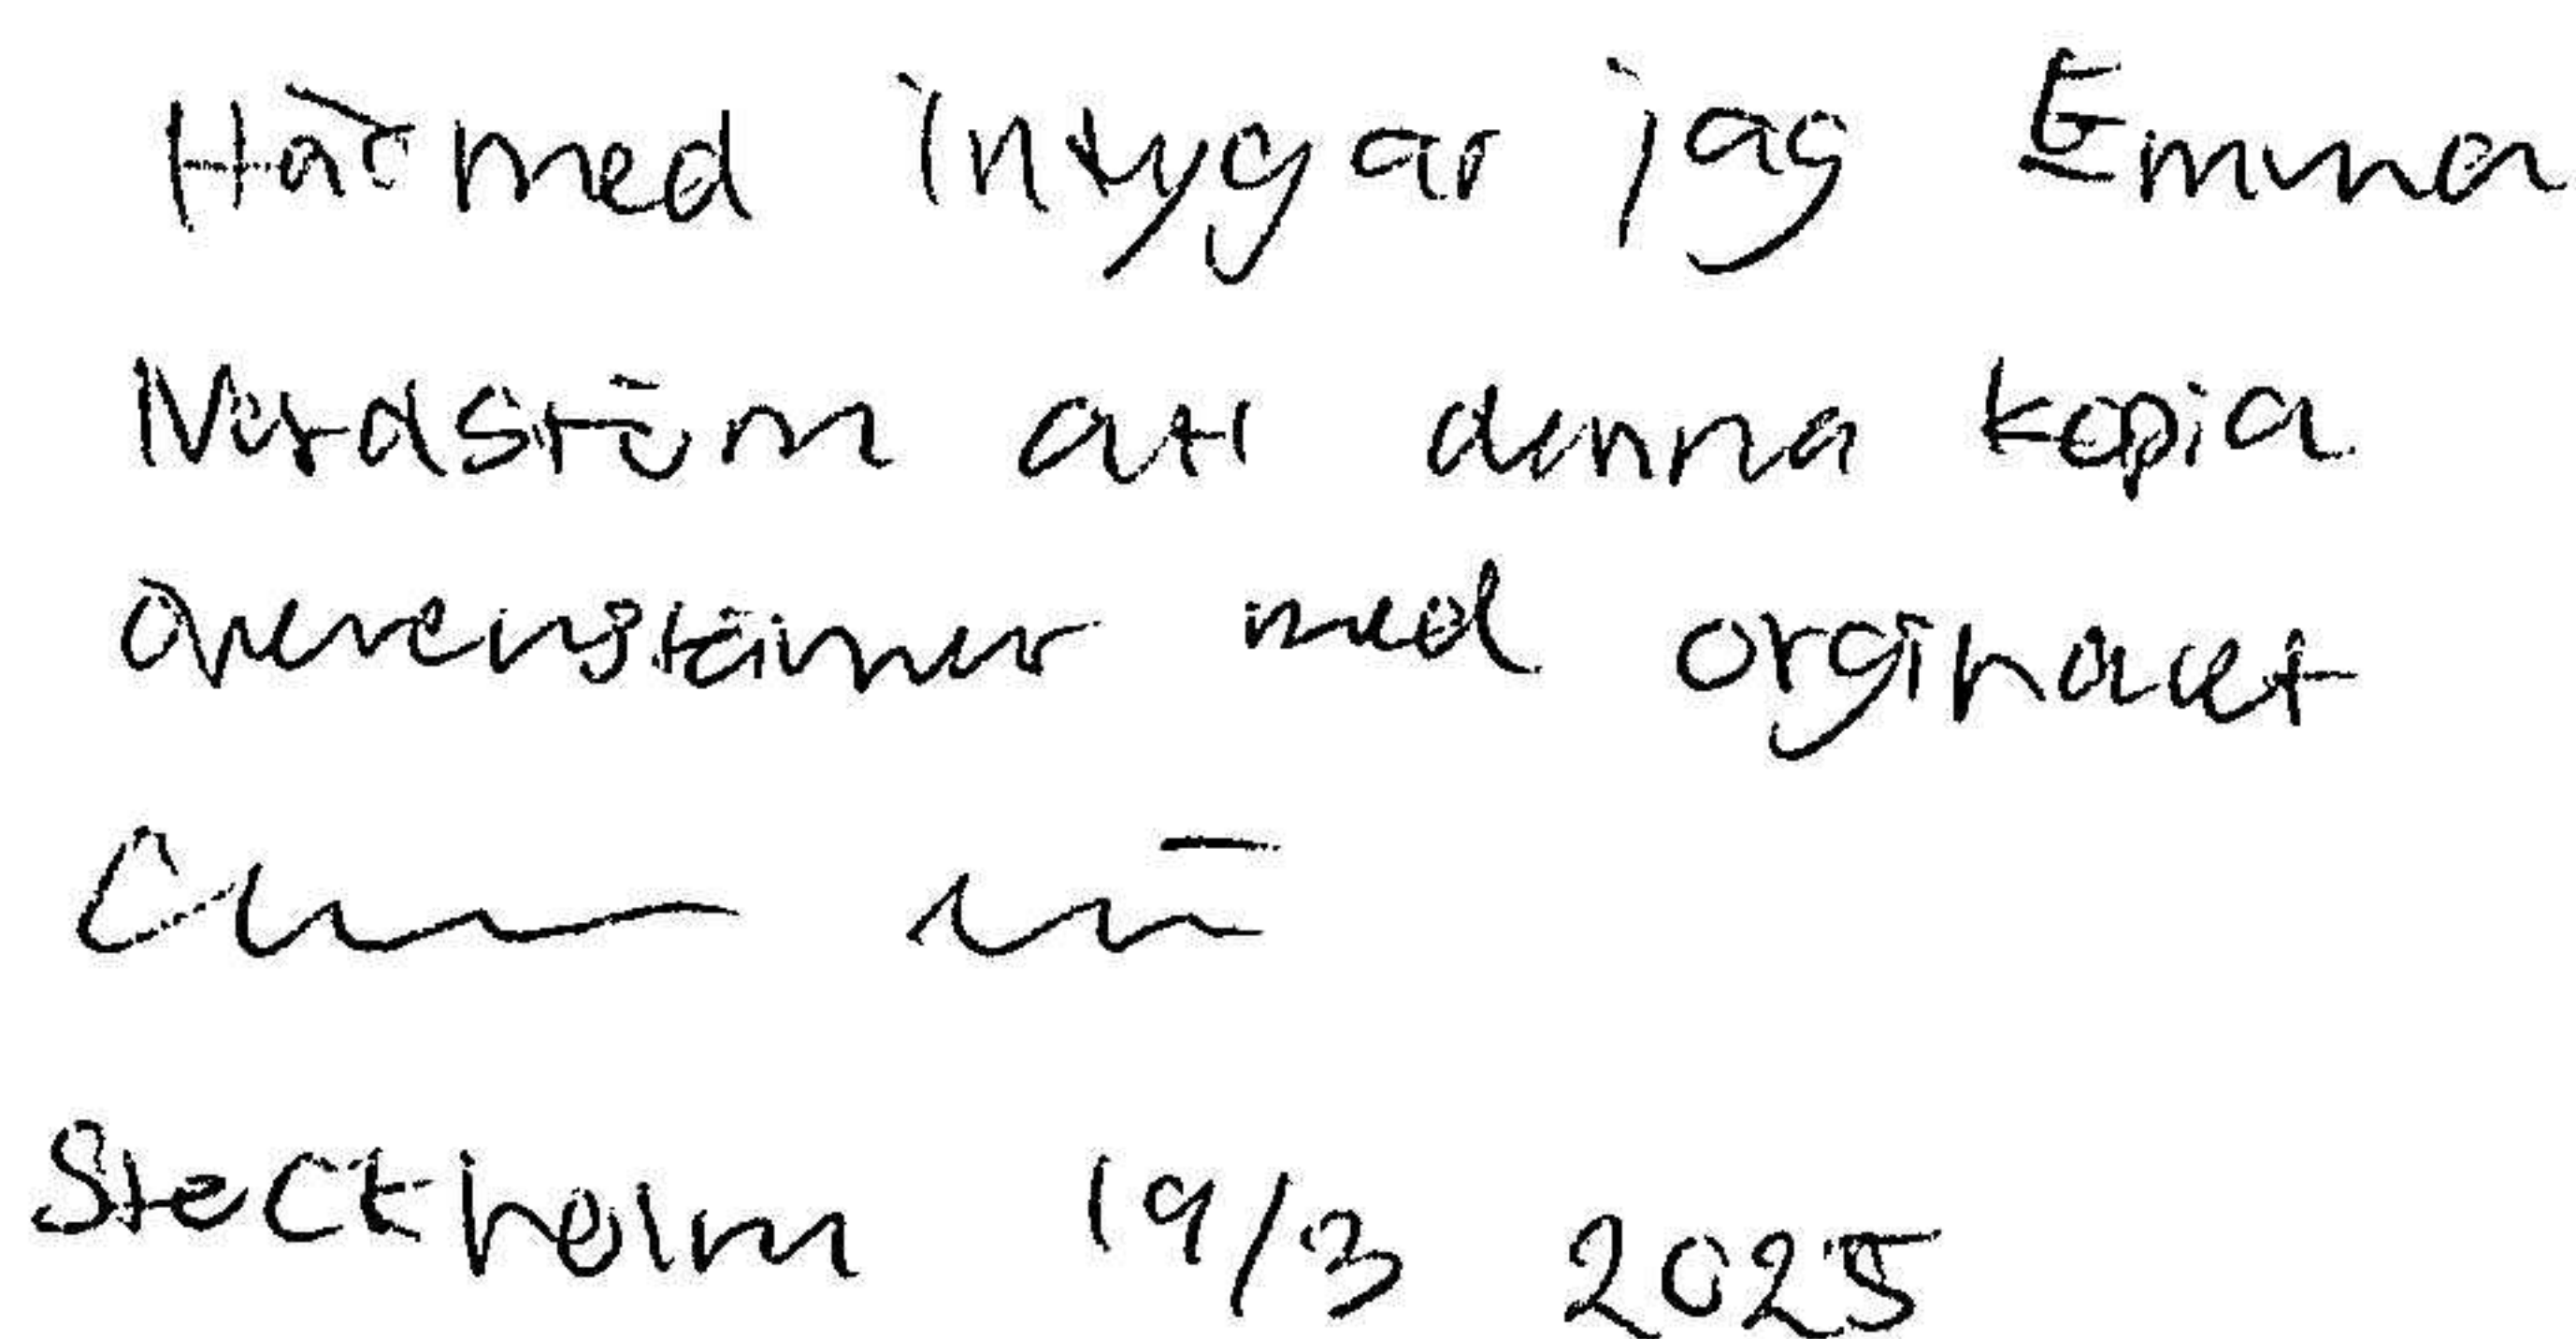 Härmed intygar jag Emma
Nordström att denna kopia
överenstämmer med orginalet
Stockholm 19/3 2025